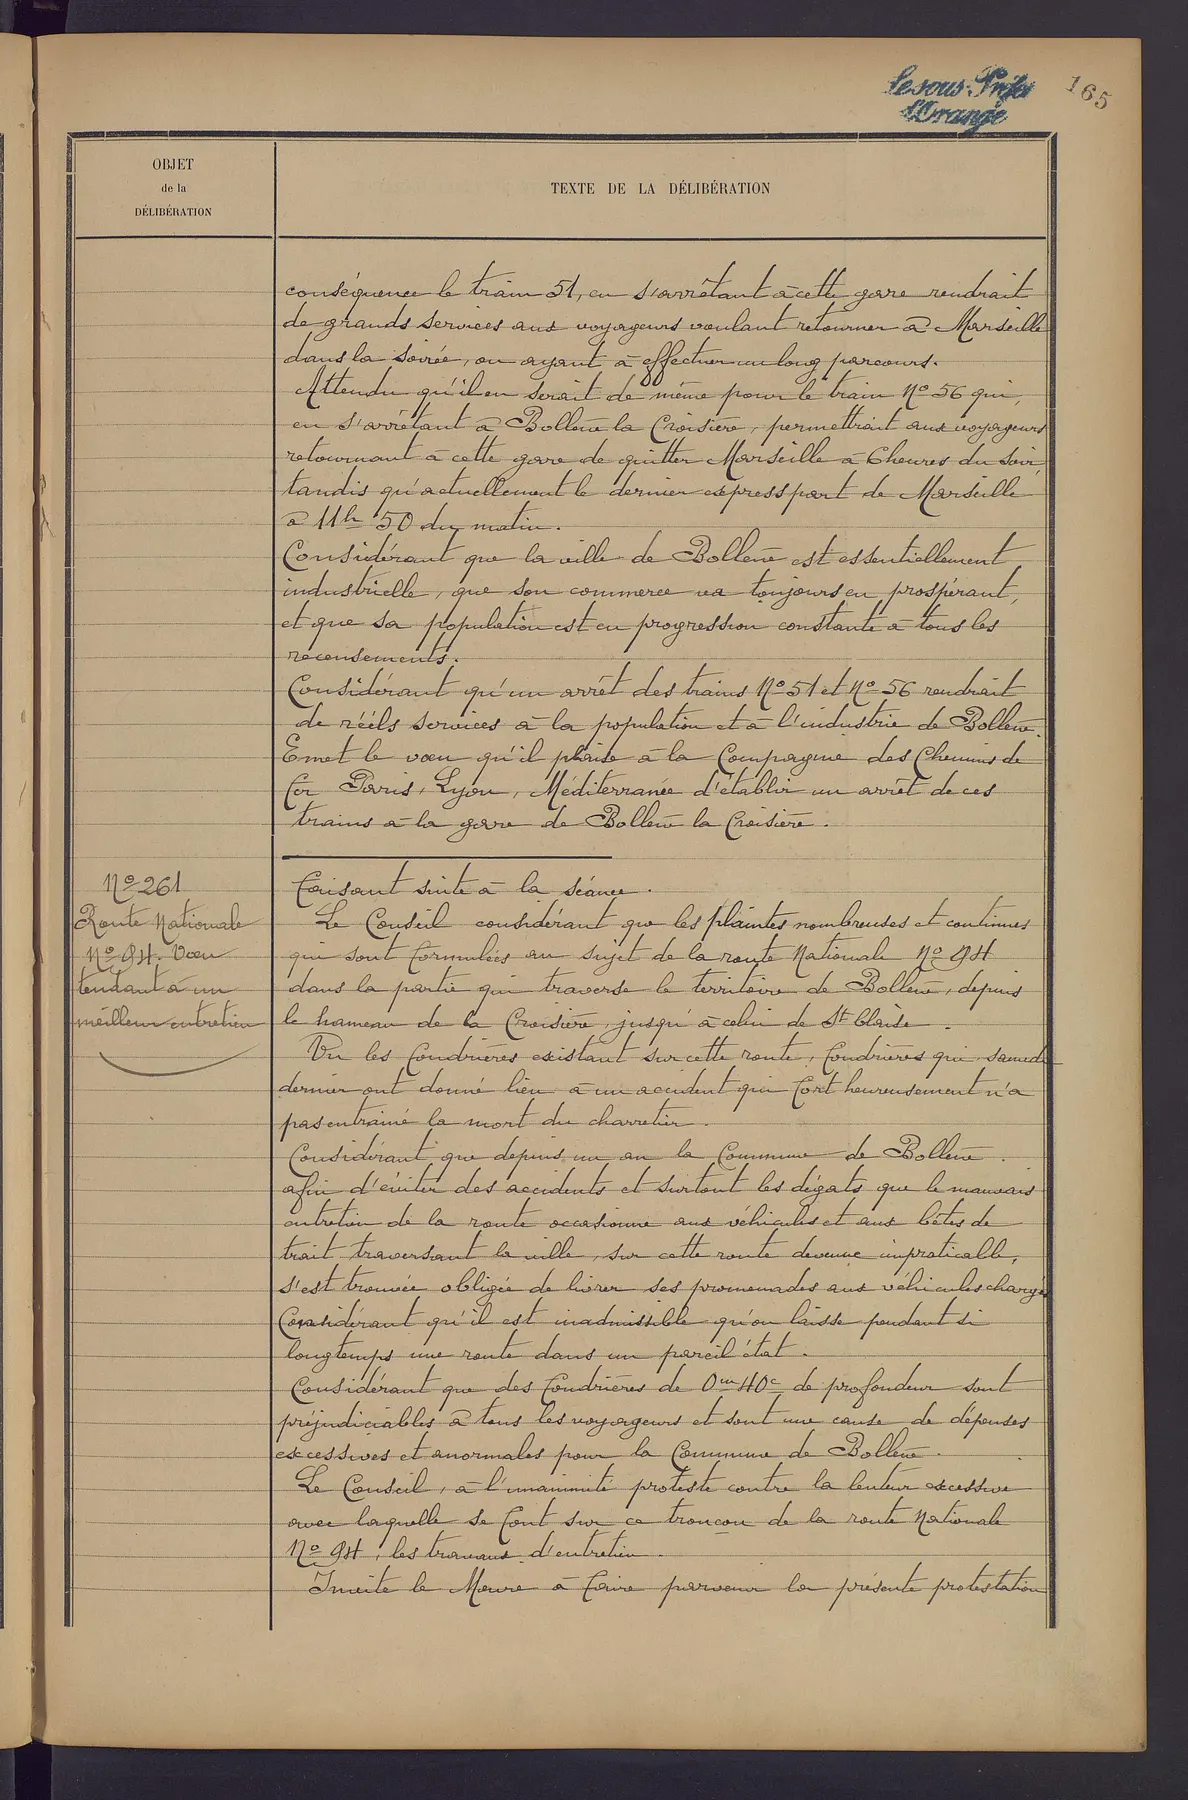 Le sous-Préfet
d'Orange
165
OBJET
de la
DÉLIBÉRATION
TEXTE DE LA DÉLIBÉRATION
conséquence le train 51, en s'arrêtant à cette gare rendrait
de grands services aux voyageurs voulant retourner à Marseille
dans la soirée, ou ayant à effectuer un long parcours.
Attendu qu'il en serait de même pour le train No 56 qui,
en s'arrêtant à Bollène la Croisière, permettrait aux voyageurs
retournant à cette gare de quitter Marseille à 6 heures du soir,
tandis qu'actuellement le dernier express part de Marseille
à 11h 50 du matin.
Considérant que la ville de Bollène est essentiellement
industrielle, que son commerce va toujours en prospérant,
et que sa population est en progression constante à tous les
recensements.
Considérant qu'un arrêt des trains No 51 et No 56 rendrait
de réels services à la population et à l'industrie de Bollène.
Emet le vœu qu'il plaise à la Compagnie des Chemins de
fer Paris, Lyon, Méditerranée d'établir un arrêt de ces
trains à la gare de Bollène la Croisière.
No 261
Route Nationale
No 94. Vœu
tendant à un
meilleur entretien
Faisant suite à la séance.
Le Conseil considérant que les plaintes nombreuses et continues
qui sont formulées au sujet de la route Nationale No 94
dans la partie qui traverse le territoire de Bollène, depuis
le hameau de la Croisière, jusqu'à celui de St Blaise.
Vu les fondrières existant sur cette route, fondrières qui samedi
dernier ont donné lieu à un accident qui fort heureusement n'a
pas entrainé la mort du charretier.
Considérant que depuis un an la Commune de Bollène.
afin d'éviter des accidents et surtout les dégats que le mauvais
entretien de la route occasionne aux véhicules et aux bêtes de
trait traversant la ville, sur cette route devenue impraticable,
s'est trouvée obligée de livrer ses promenades aux véhicules chargés
Considérant qu'il est inadmissible qu'on laisse pendant si
longtemps une route dans un pareil état.
Considérant que des fondrières de 0m 40c de profondeur sont
préjudiciables à tous les voyageurs et sont une cause de dépenses
excessives et anormales pour la Commune de Bollène.
Le Conseil, à l'unanimité proteste contre la lenteur excessive
avec laquelle se font sur ce tronçon de la route Nationale
No 94, les travaux d'entretien.
Invite le Maire à faire parvenir la présente protestation